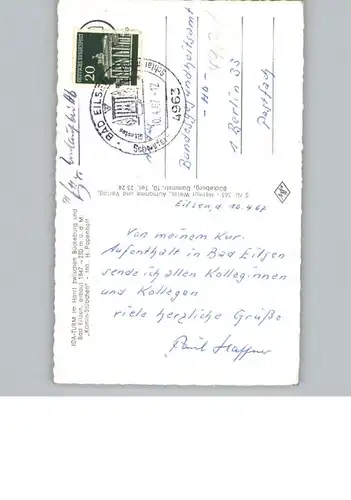 Eilsen d. 10.4.67
Von meinem Kur.
Aufenthalt in Bad Eilsen
sende ich allen Kolleginnen
und Kollegen
viele herzliche Grüße
Paul
Bundesgesundheitsamt
1 Berlin 33
Postfach
20
DEUTSCHE BUNDESPOST
4963
BAD EILSEN
10.4.67-12
IDA-TURM im Harrl zwischen Bückeburg und
Bad Eilsen, erbaut 1847
"Kamin-Stübchen" - Inh. H. Papenhoff
Helmut Weiss, Autophoto und Verlag
Bückeburg, Dammstr. 10, Tel. 25 24